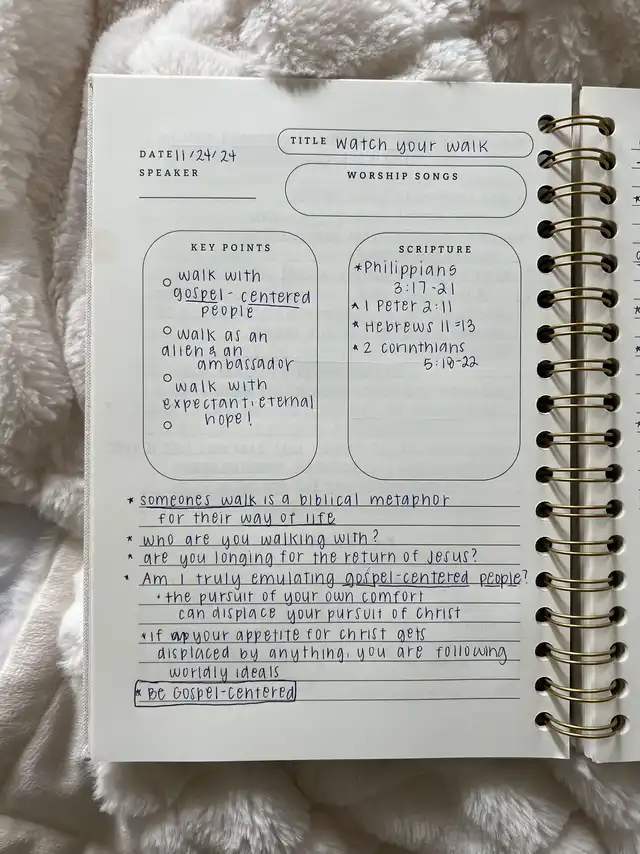 TITLE watch your walk
DATE 11/24/24
SPEAKER
WORSHIP SONGS
KEY POINTS
walk with
gospel-centered
people
walk as an
alien & an
ambassador
walk with
expectant, eternal
hope!
SCRIPTURE
*Philippians
3:17-21
* 1 Peter 2:11
* Hebrews 11:13
* 2 corinthians
5:18-22
* someones walk is a biblical metaphor
for their way of life
* who are you walking with?
* are you longing for the return of Jesus?
* Am I truly emulating gospel-centered people?
• the pursuit of your own comfort
can displace your pursuit of Christ
* if your appetite for christ gets
displaced by anything, you are following
worldly ideals
* BE GOSPEL-CENTERED